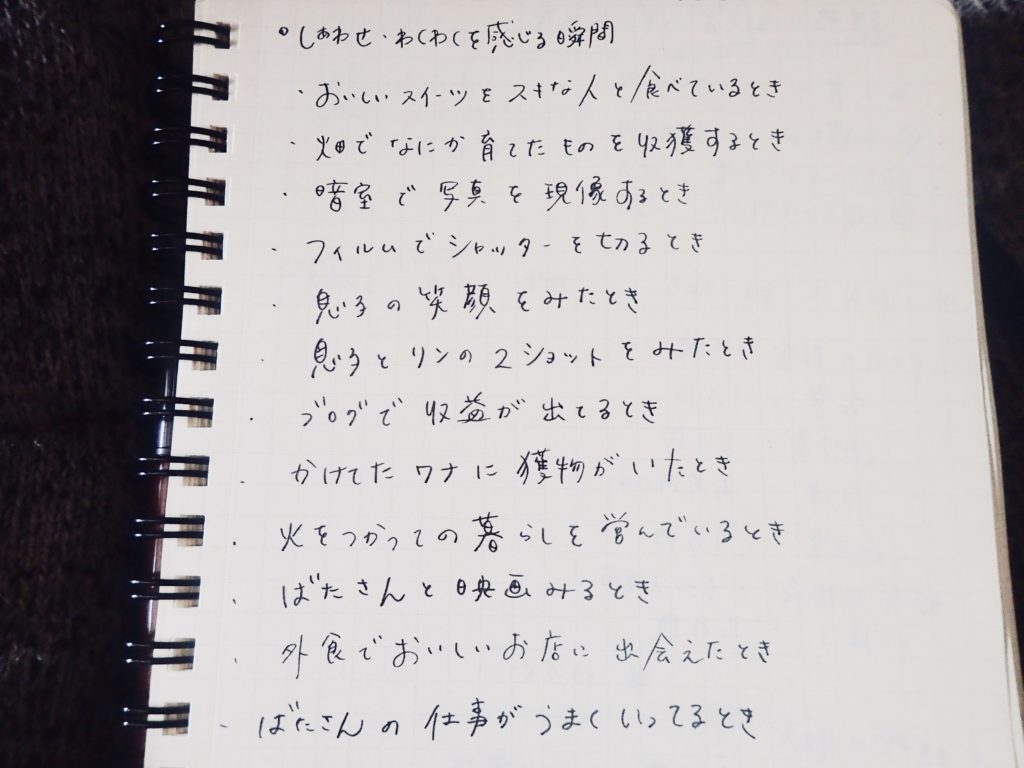 ○しあわせ・わくわくを感じる瞬間
・おいしいスイーツをスキな人と食べているとき
・畑でなにか育てたものを収獲するとき
・暗室で写真を現像するとき
・フィルムでシャッターを切るとき
・息子の笑顔をみたとき
・息子とリンの2ショットをみたとき
・ブログで収益が出てるとき
・かけてたワナに獲物がいたとき
・火をつかっての暮らしを営んでいるとき
・ばたさんと映画みるとき
・外食でおいしいお店に出会えたとき
・ばたさんの仕事がうまくいってるとき